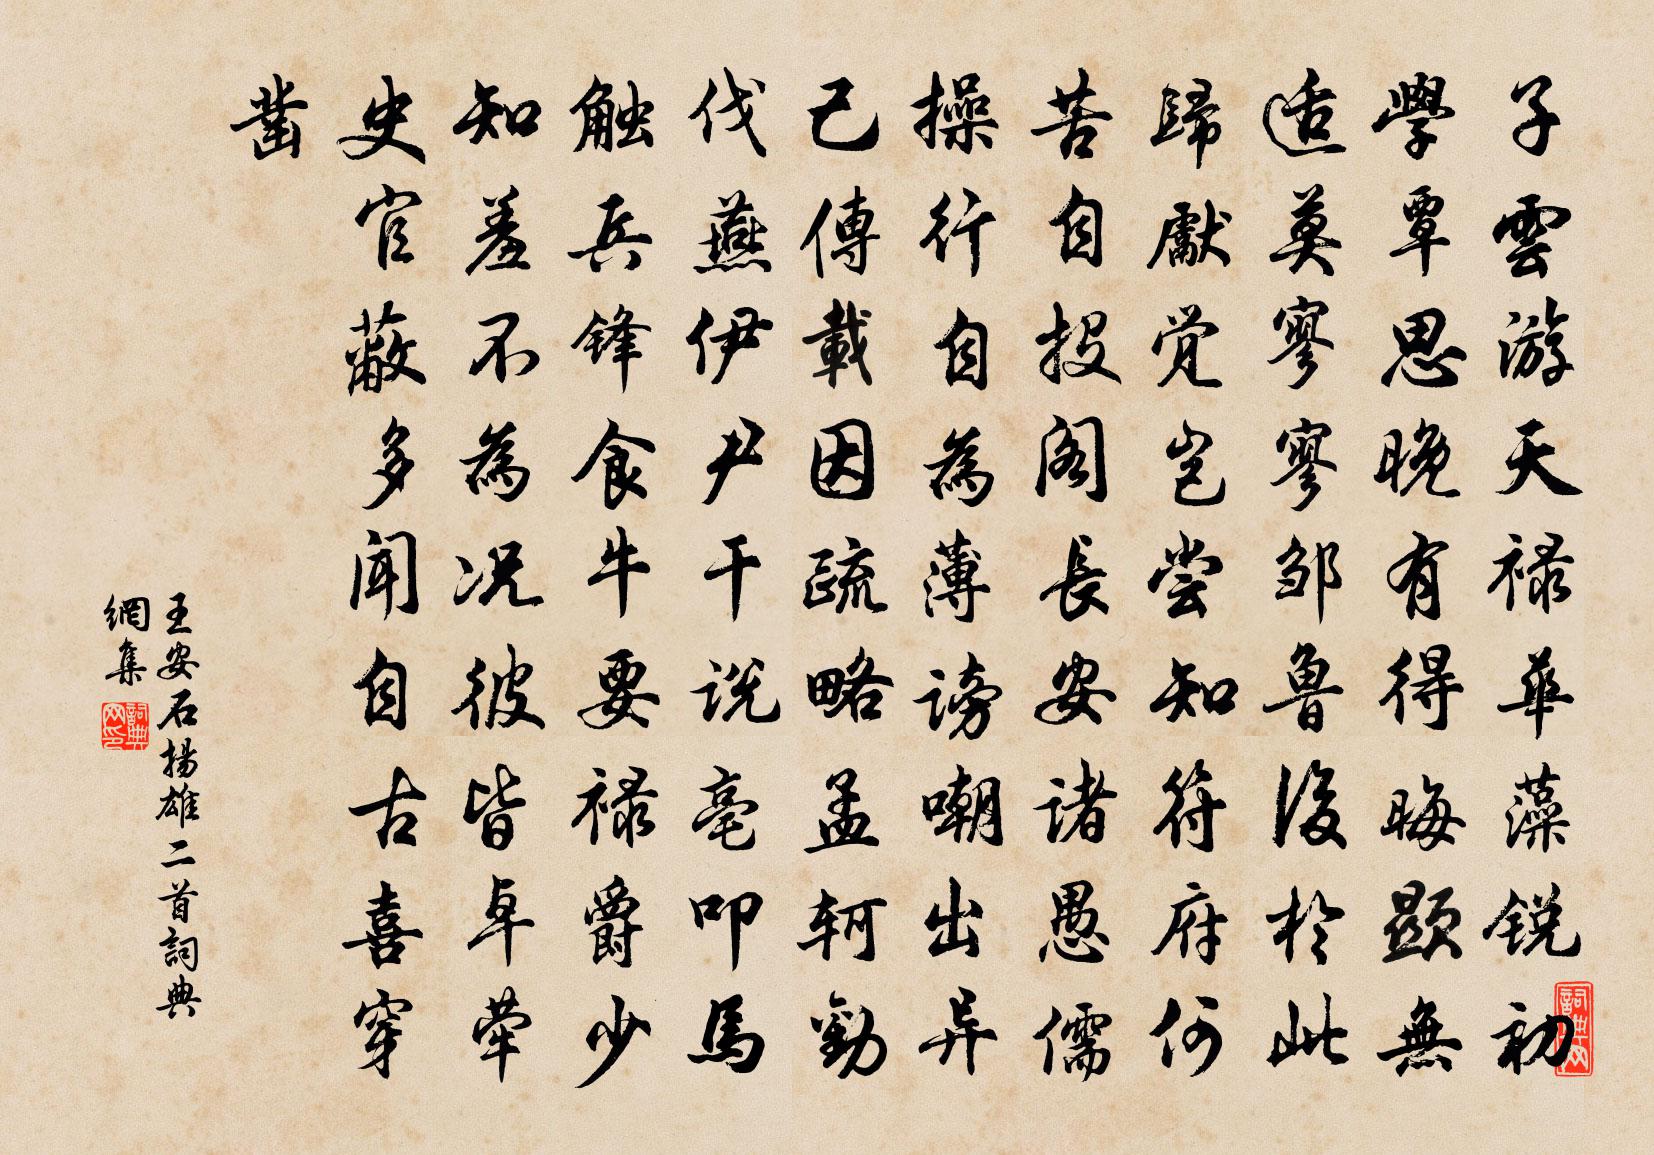 子雲游天禄華藻锐初
學覃思晚有得晦顕無
适莫寥寥邹鲁後於此
歸獻觉岂尝知符府何
苦自投阁長安诸愚儒
操行自為薄谤嘲出异
己傳載因疏略孟轲勸
伐燕伊尹干说亳叩馬
触兵锋食牛要禄爵少
知羞不為况彼皆卓犖
史官蔽多闻自古喜穿
凿
王安石揚雄二首詞典
網集
詞典网
詞典网印